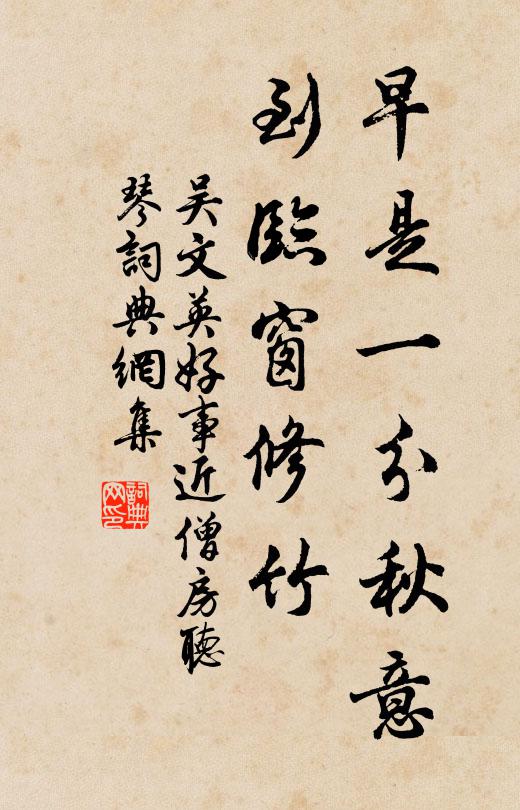 早是一分秋意
到臨窗修竹
吴文英好事近僧房聽
琴詞典網集
詞典
网印